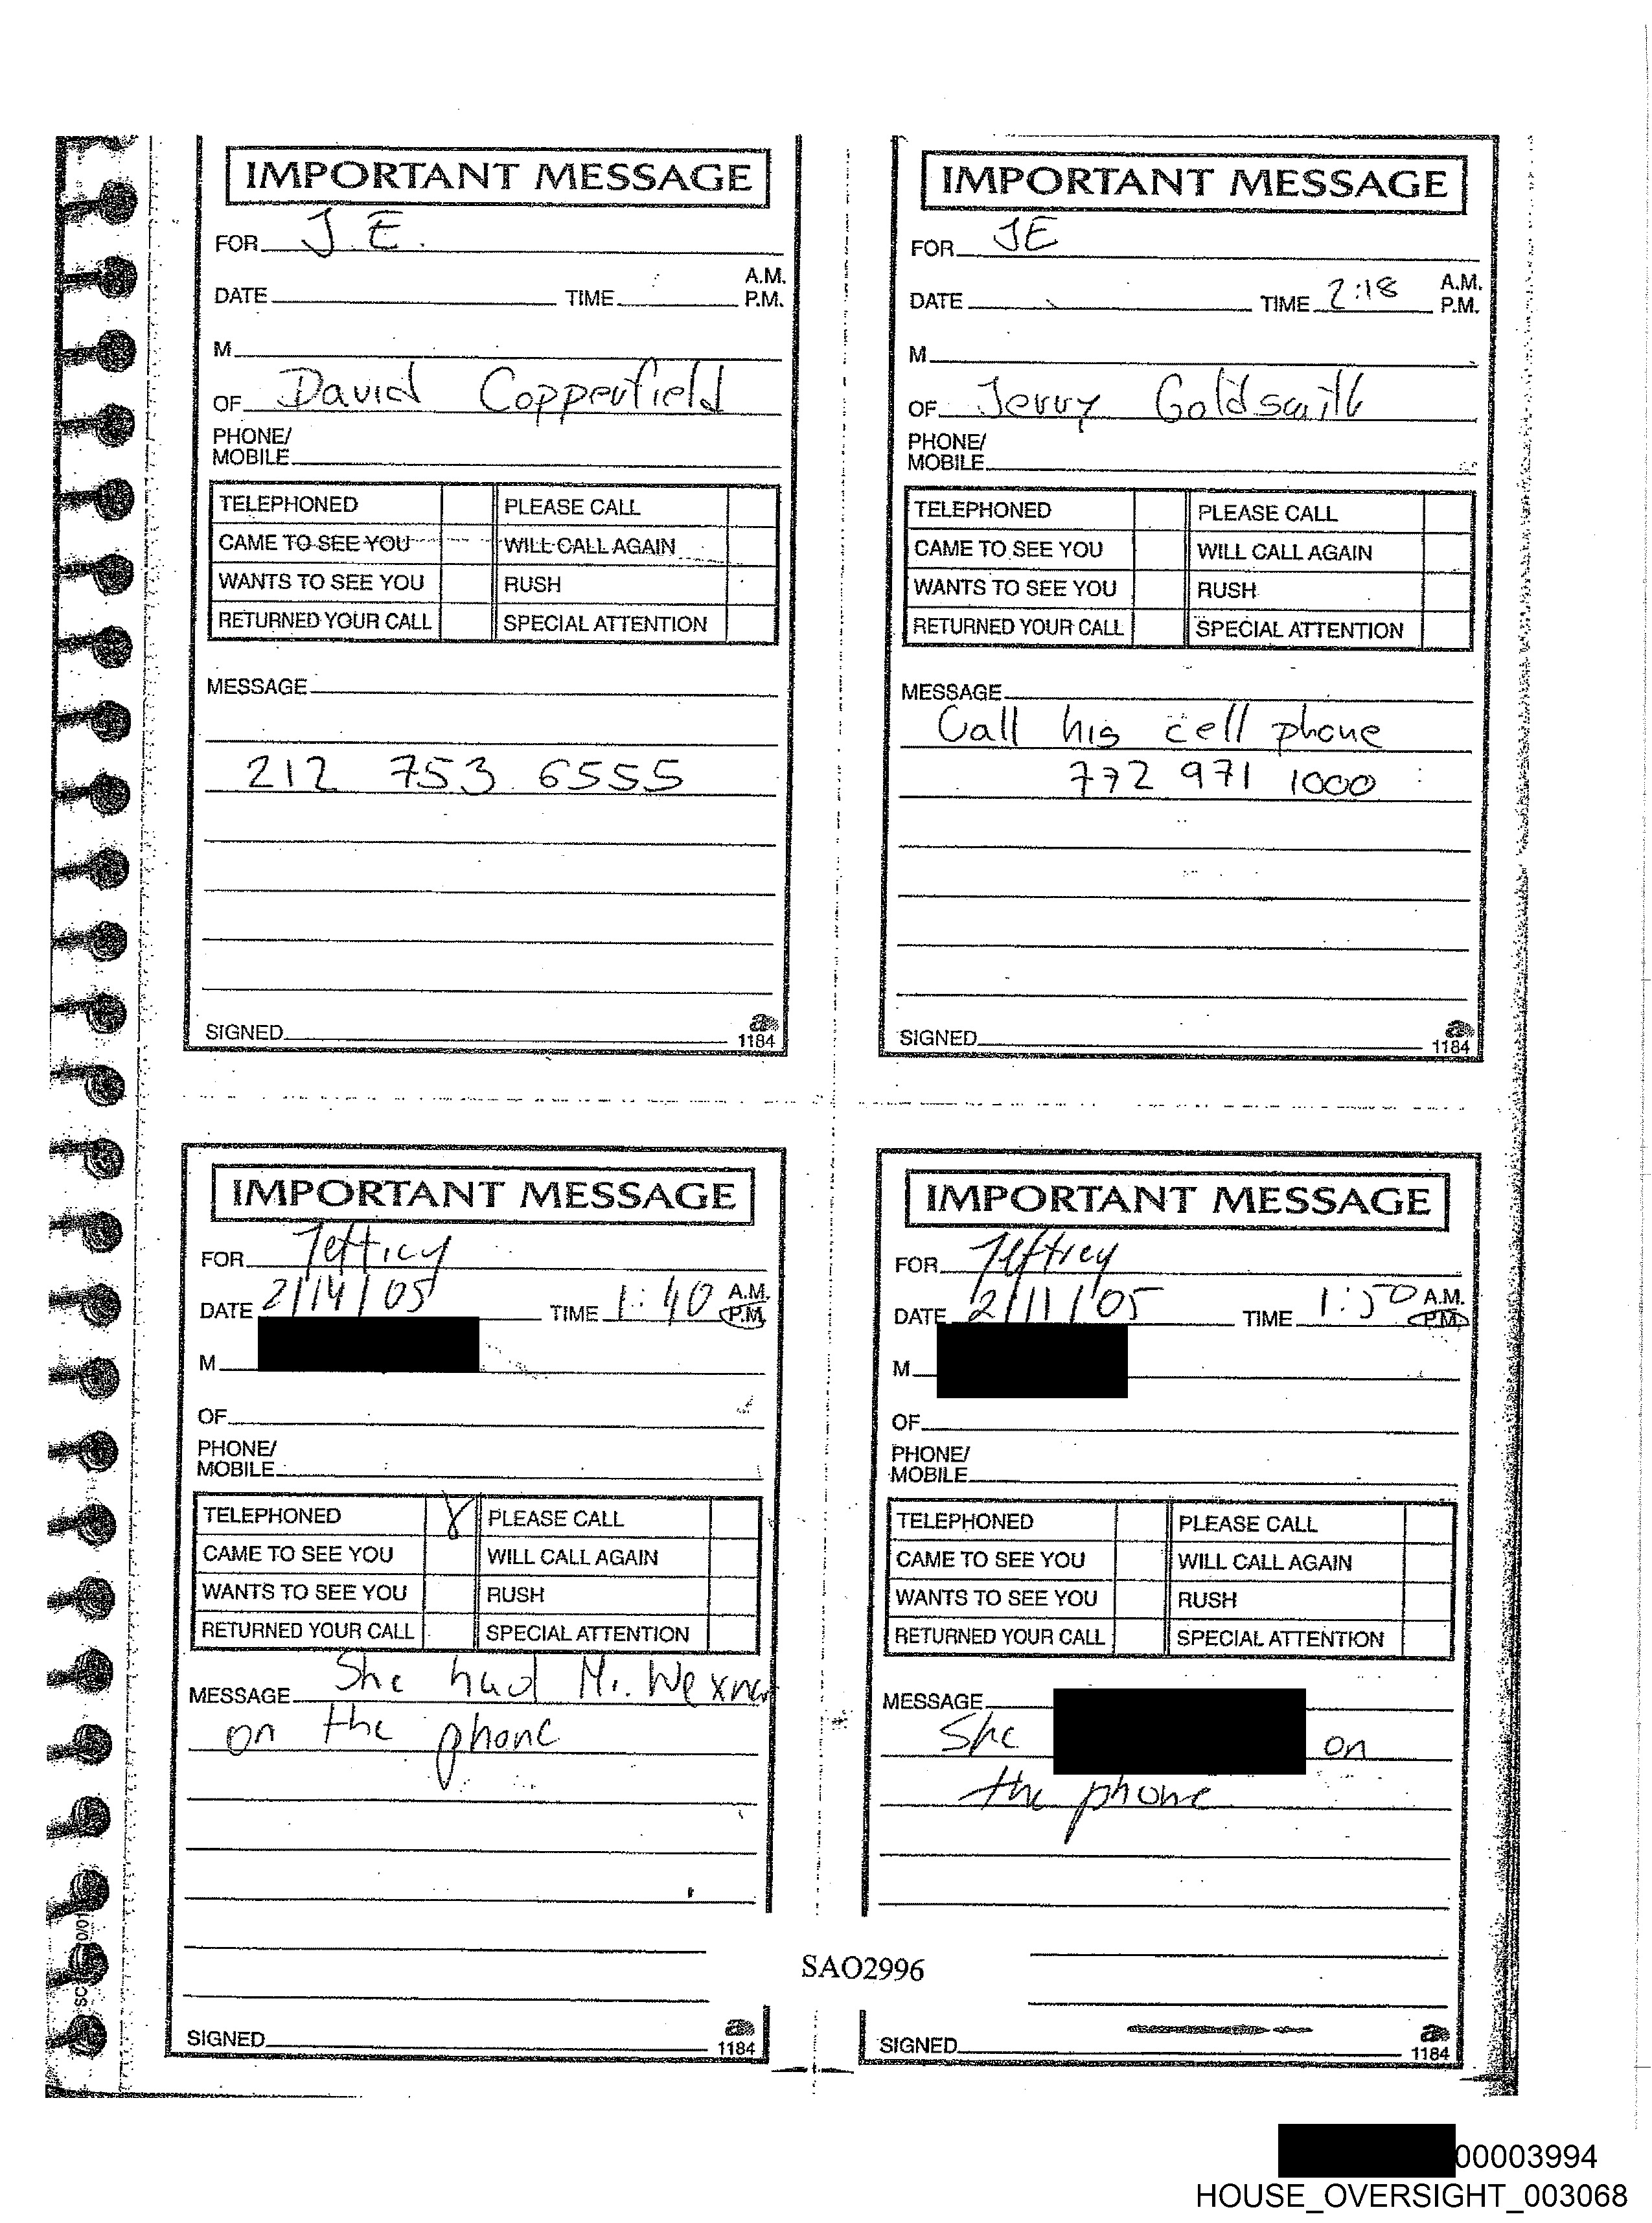 IMPORTANT MESSAGE
FOR J.E.
DATE TIME A.M. P.M.
M
OF David Copperfield
PHONE/
MOBILE
TELEPHONED PLEASE CALL
CAME TO SEE YOU WILL CALL AGAIN
WANTS TO SEE YOU RUSH
RETURNED YOUR CALL SPECIAL ATTENTION
MESSAGE
212 753 6555
SIGNED
1184
IMPORTANT MESSAGE
FOR JE
DATE TIME 2:18 A.M. P.M.
M
OF Jerry Goldsmith
PHONE/
MOBILE
TELEPHONED PLEASE CALL
CAME TO SEE YOU WILL CALL AGAIN
WANTS TO SEE YOU RUSH
RETURNED YOUR CALL SPECIAL ATTENTION
MESSAGE
Call his cell phone
772 971 1000
SIGNED
1184
IMPORTANT MESSAGE
FOR Jeffrey
DATE 2/14/05 TIME 1:40 A.M. P.M.
M
OF
PHONE/
MOBILE
TELEPHONED PLEASE CALL
CAME TO SEE YOU WILL CALL AGAIN
WANTS TO SEE YOU RUSH
RETURNED YOUR CALL SPECIAL ATTENTION
MESSAGE She had Mr. Wexner
on the phone
SIGNED
1184
IMPORTANT MESSAGE
FOR Jeffrey
DATE 2/11/05 TIME 1:50 A.M. P.M.
M
OF
PHONE/
MOBILE
TELEPHONED PLEASE CALL
CAME TO SEE YOU WILL CALL AGAIN
WANTS TO SEE YOU RUSH
RETURNED YOUR CALL SPECIAL ATTENTION
MESSAGE
She on
the phone
SIGNED
1184
SAO2996
00003994
HOUSE_OVERSIGHT_003068